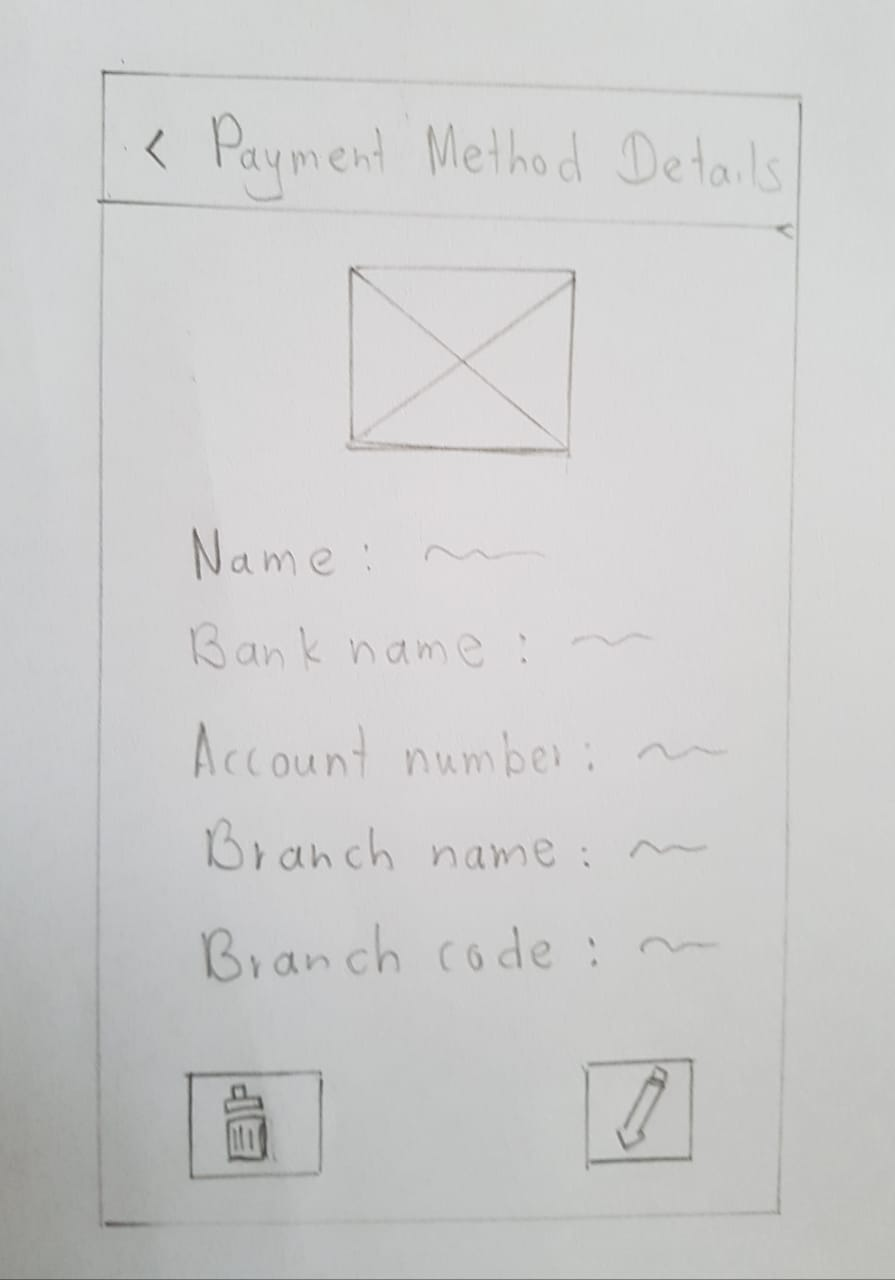 < Payment Method Details
Name :
Bank name :
Account number :
Branch name :
Branch code :